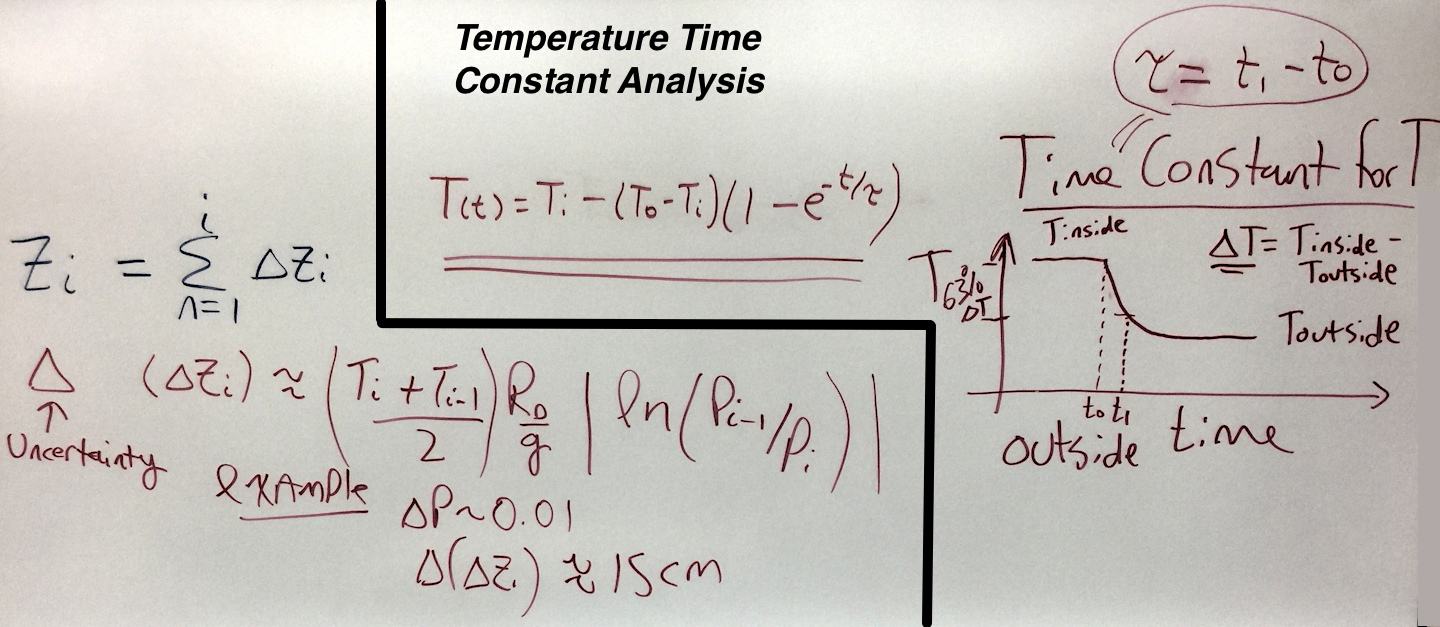 Temperature Time
Constant Analysis
τ = t₁ - t₀
Time Constant for T
T(t) = Tᵢ - (T₀-Tᵢ)(1 - e^-t/τ)
Zᵢ = Σ ΔZᵢ
i
n=1
Δ (ΔZᵢ) ≈ (Tᵢ + Tᵢ₋₁ / 2) R_D/g | ln(Pᵢ₋₁/Pᵢ) |
↑
Uncertainty
Example
ΔP ~ 0.01
Δ(ΔZᵢ) ≈ 15cm
Tinside
ΔT = Tinside -
Toutside
T 63% ΔT
Toutside
t₀ t₁
outside time